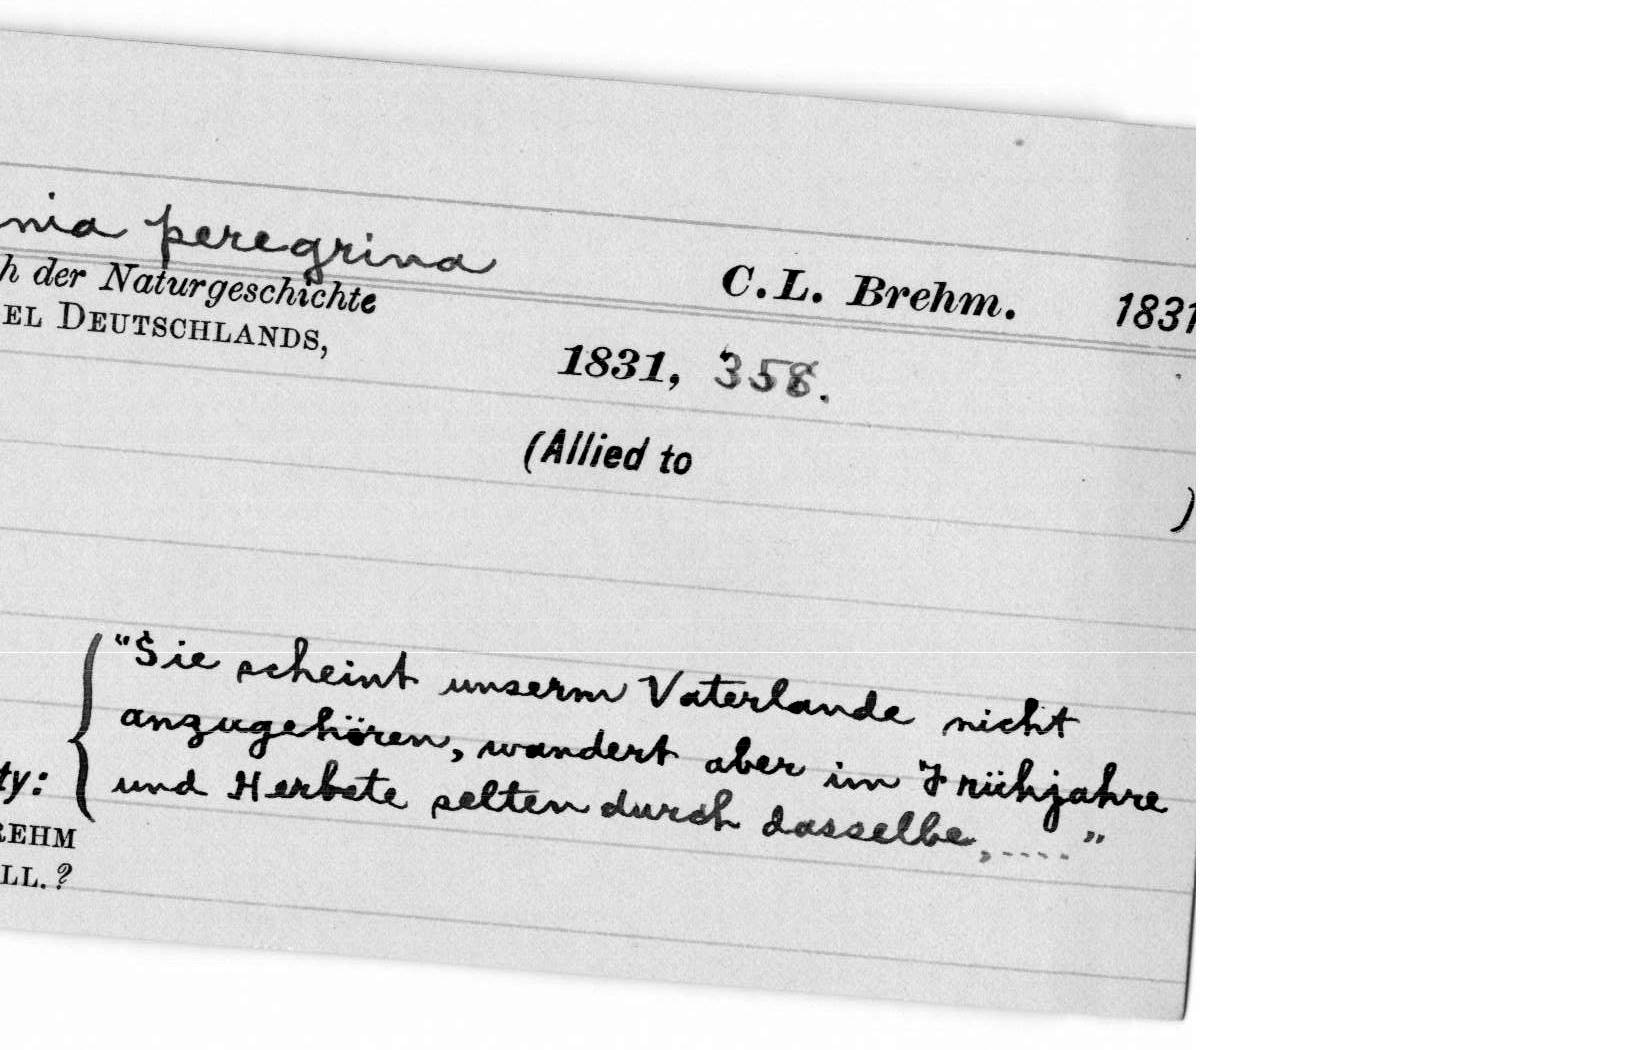 nia peregrina
C.L. Brehm. 1831
h der Naturgeschichte
EL DEUTSCHLANDS,
1831, 358.
(Allied to )
"Sie scheint unserm Vaterlande nicht
anzugehören, wandert aber im Frühjahre
ty: und Herbste selten durch dasselbe, ..... "
REHM
LL. ?